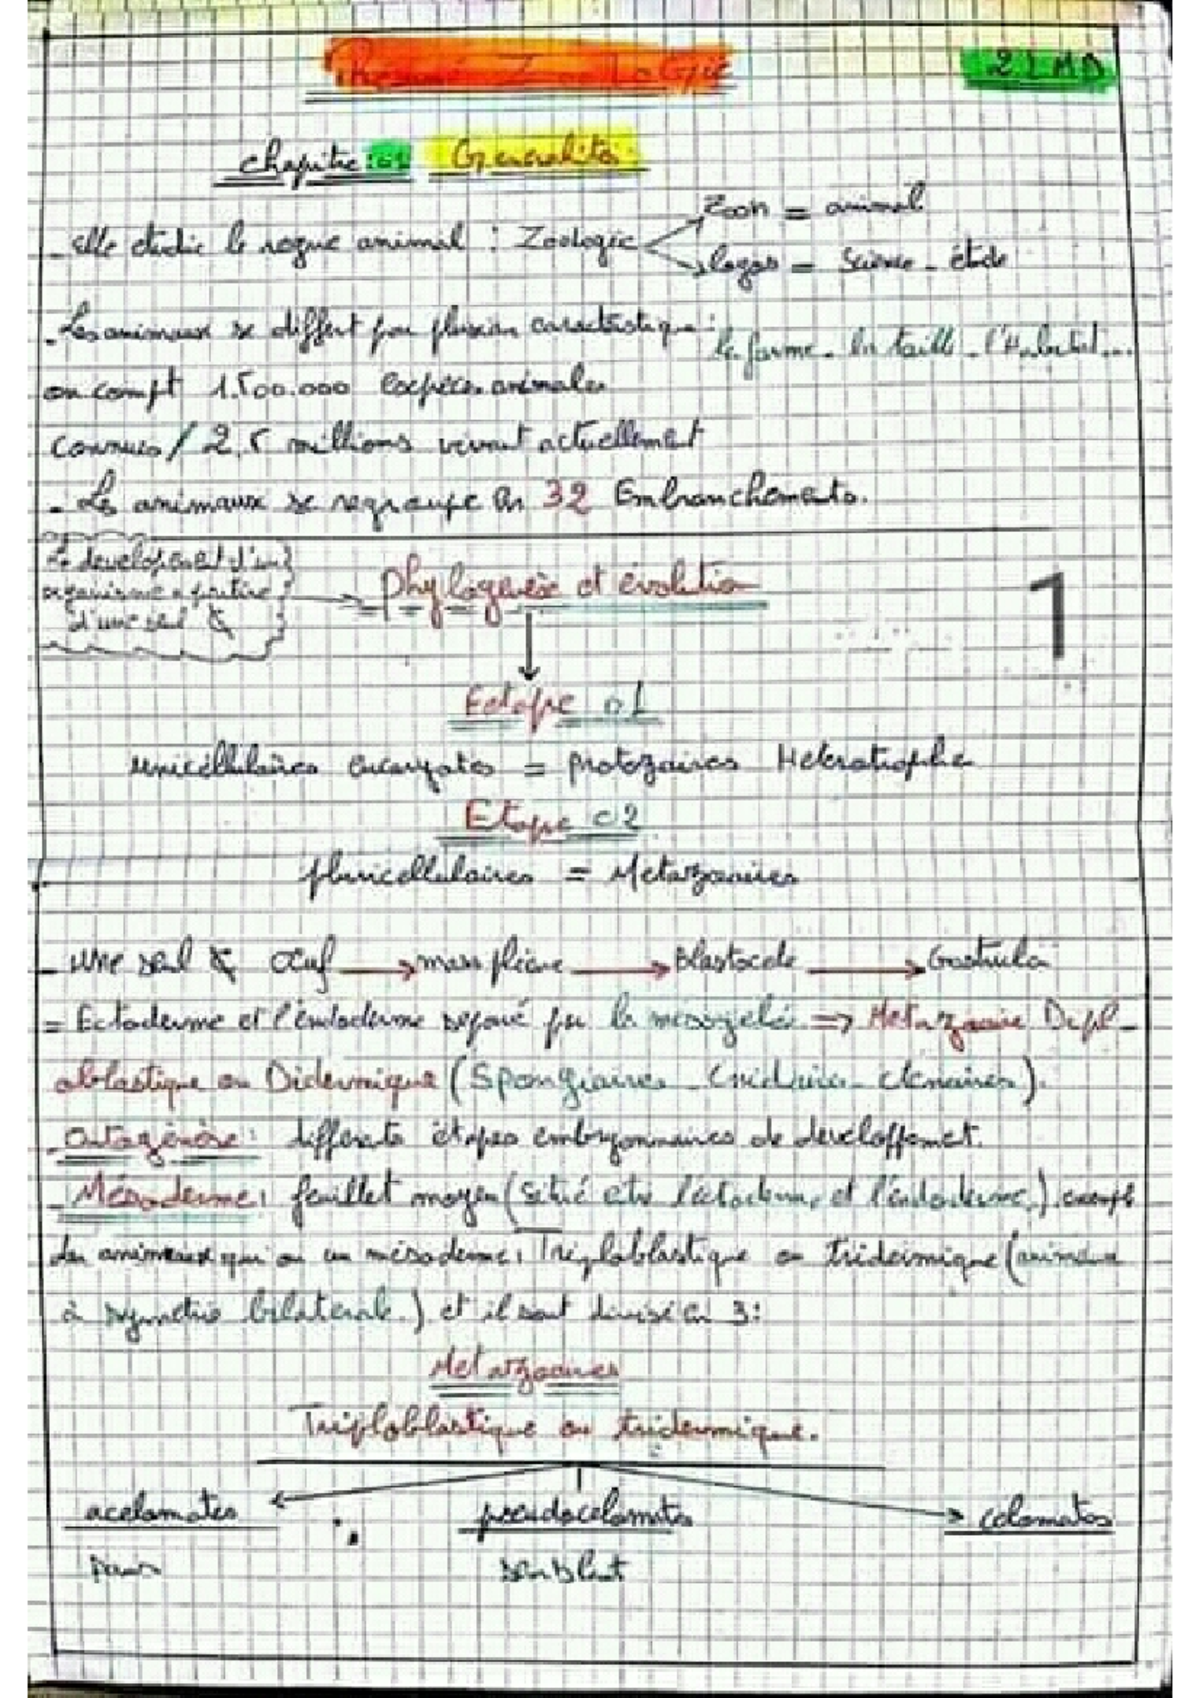 Resumé Zoologie
2 LMD
chapitre : 01 Generalités
Zoon = animal
- Elle etudie le regne animal : Zoologie
logos = Science - étude
- Les animaux se differt par plusieur caractéstique :
la forme - la taille - l'Habitat...
on compt 1.500.000 éspèces animales
connues / 2,5 millions vivant actuellement
- Les animaux se regroupe en 32 Embranchements.
Le developement d'un
organisme a partire
d'une seul
Phylogenèse et évolution
1
Ectape 01
unicellulaires eucaryotes = protozoaires Heterotrophe
Etape 02
pluricellulaires = Metazoaires
- une seul œuf → mass pleine → Blastocele → Gastrula
= Ectoderme et l'endoderme séparé par la mésoglée ⇒ Metazoaire Dipl-
oblastique ou Didermique (Spongiaires - Cnidaires - ctenaires).
- Ontogénèse : differents étapes embryonnaires de developpement.
- Mésoderme : feuillet moyen (situé etre l'éctoderme et l'éndoderme). exempl
Les animeaux qui on un mésoderme : Triploblastique ou tridermique (animeaux
à symetrie bilaterale.) et il sont divisé en 3 :
Metazoaires
Triploblastique ou tridermique.
acelomates pseudocelomates celomates
sans semblant